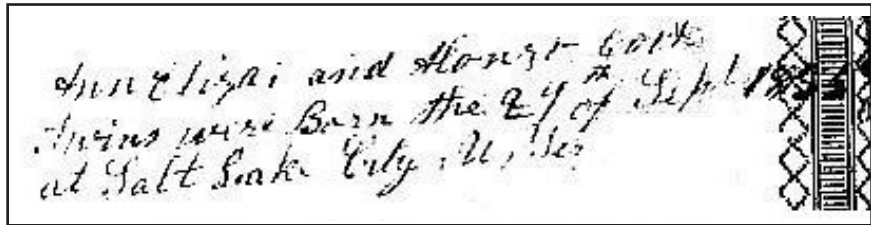 Ann Elizai and Alonzo Cook
Twins were Born the 29th of Sept
at Salt Lake City, U, Ter